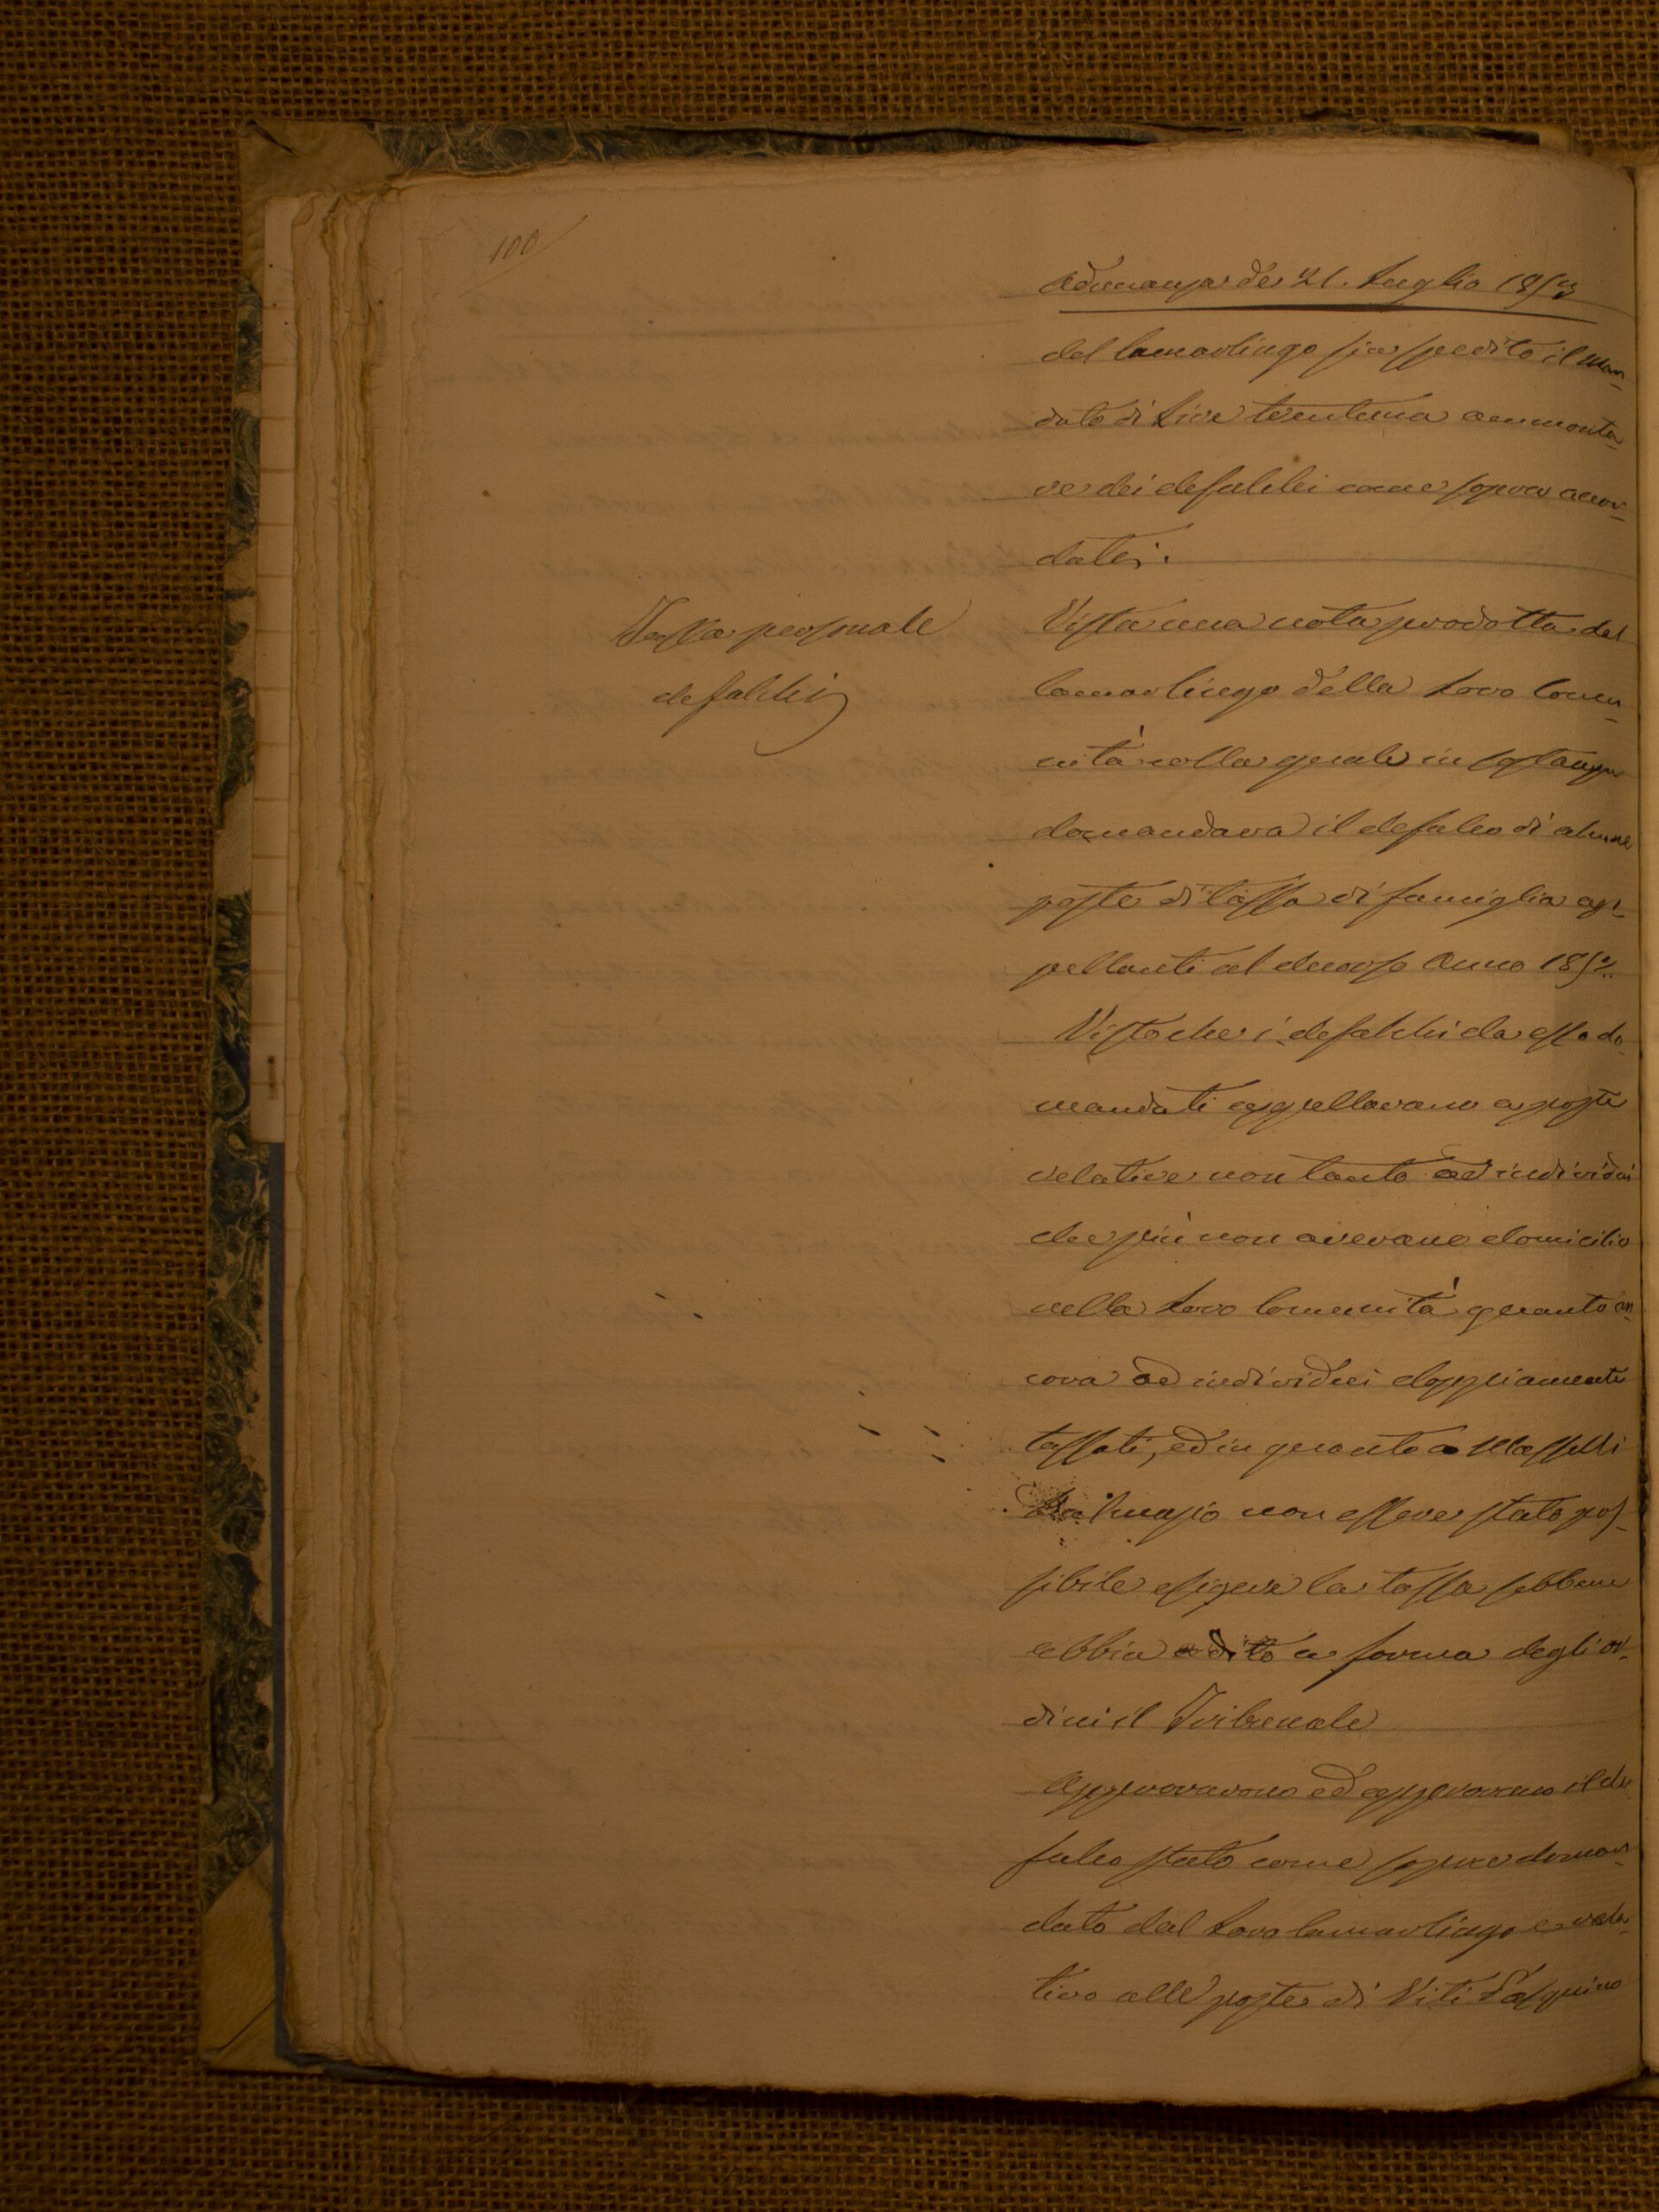 100
Adunanza de' 21. Luglio 1853
del Camarlingo sia spedito il man-
dato di Lire trentuna ammonta-
re dei defalchi come sopra accor-
dati.
Tassa personale
defalchi
Vista una nota prodotta dal
Camarlingo della Loro Comu-
nità colla quale in sostanza
domandava il defalco di alcune
poste di tassa di famiglia ap-
pellanti al decorso Anno 1852.
Visto che i defalchi da esso do-
mandati appellavano a poste
relative non tanto ad individui
che più non avevano domicilio
nella Loro Comunità quanto an-
cora ad individui doppiamente
tassati, ed in quanto a Masselli
non essere stato pos-
sibile esigere la tassa sebbene
abbia adito a forma degli or-
dini il Tribunale
Approvarono ed approvano il de-
falco stato come sopra doman-
dato dal Loro Camarlingo e rela-
tivo alle poste di Viti Pasquino